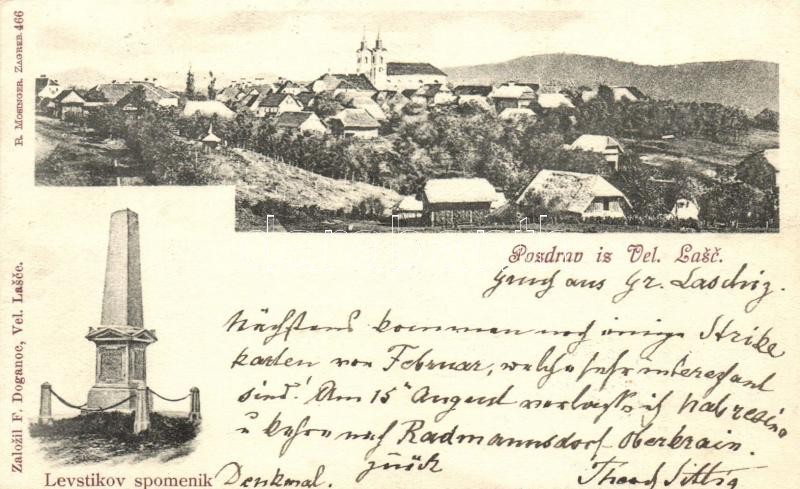 R. Mosinger. Zagreb. 466
Pozdrav iz Vel. Lašč.
Gruss aus Gr. Laschiz.
Nächstens kommen noch einige Strike
karten von Februar, welche sehr interessant
sind! Am 15 August verlasse ich Nabresina
u kehre nach Radmannsdorf Oberkrain.
zurück
Založil F. Doganoc, Vel. Lašče.
Levstikov spomenik
Denkmal.